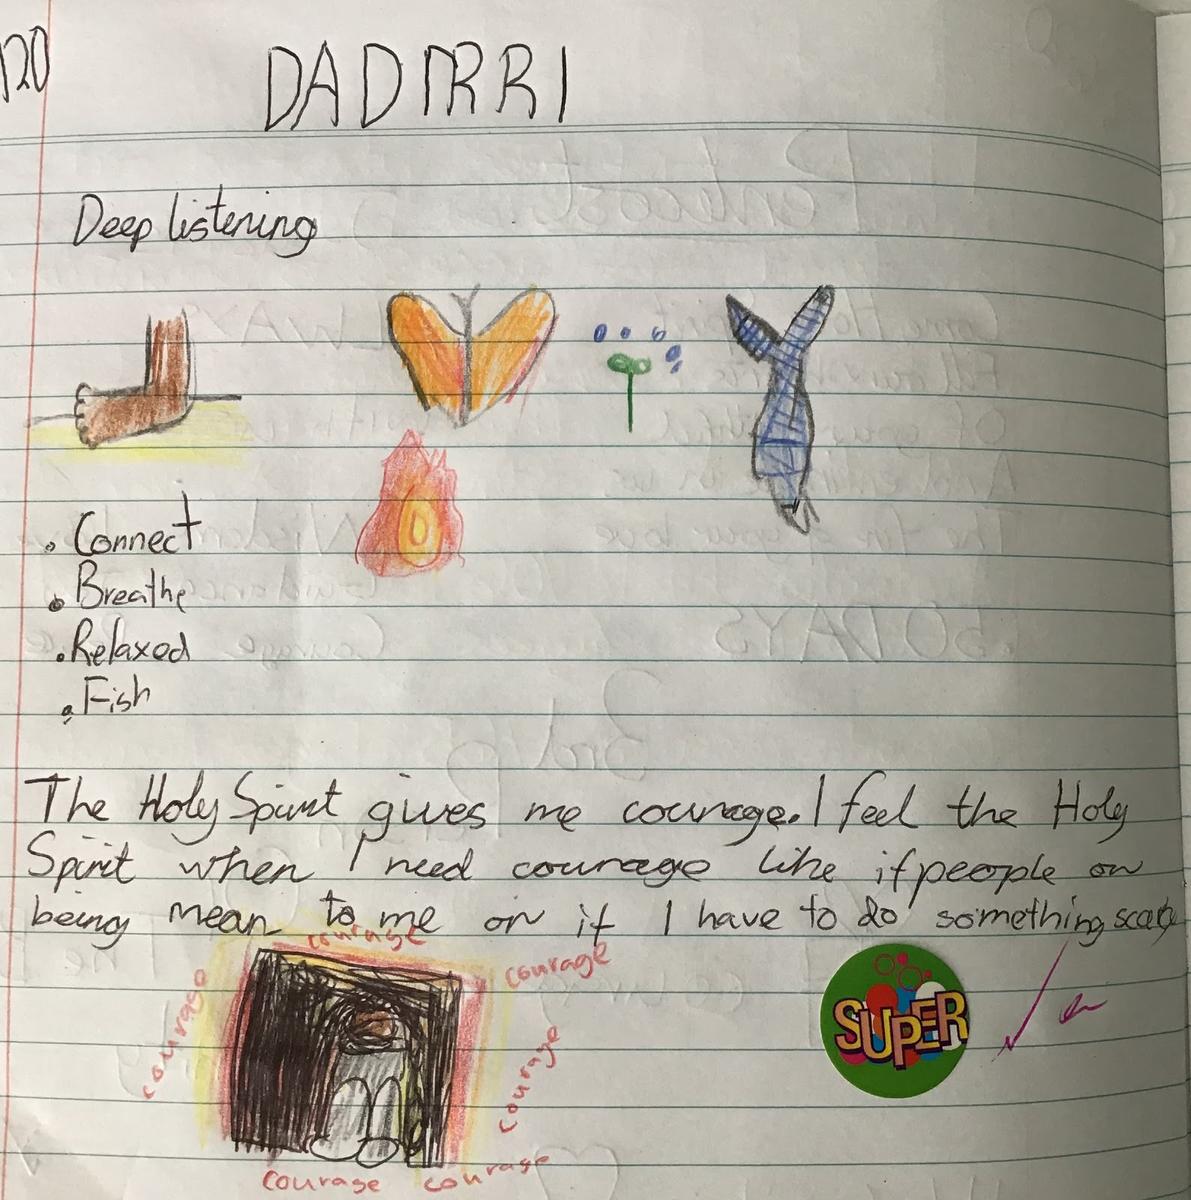 120
DADIRRI
Deep listening
. Connect
. Breathe
. Relaxed
. Fish
The Holy Spirit gives me courage. I feel the Holy
Spirit when I need courage like if people or
being mean to me or if I have to do something scary
courage
courage
courage
courage
courage courage
SUPER